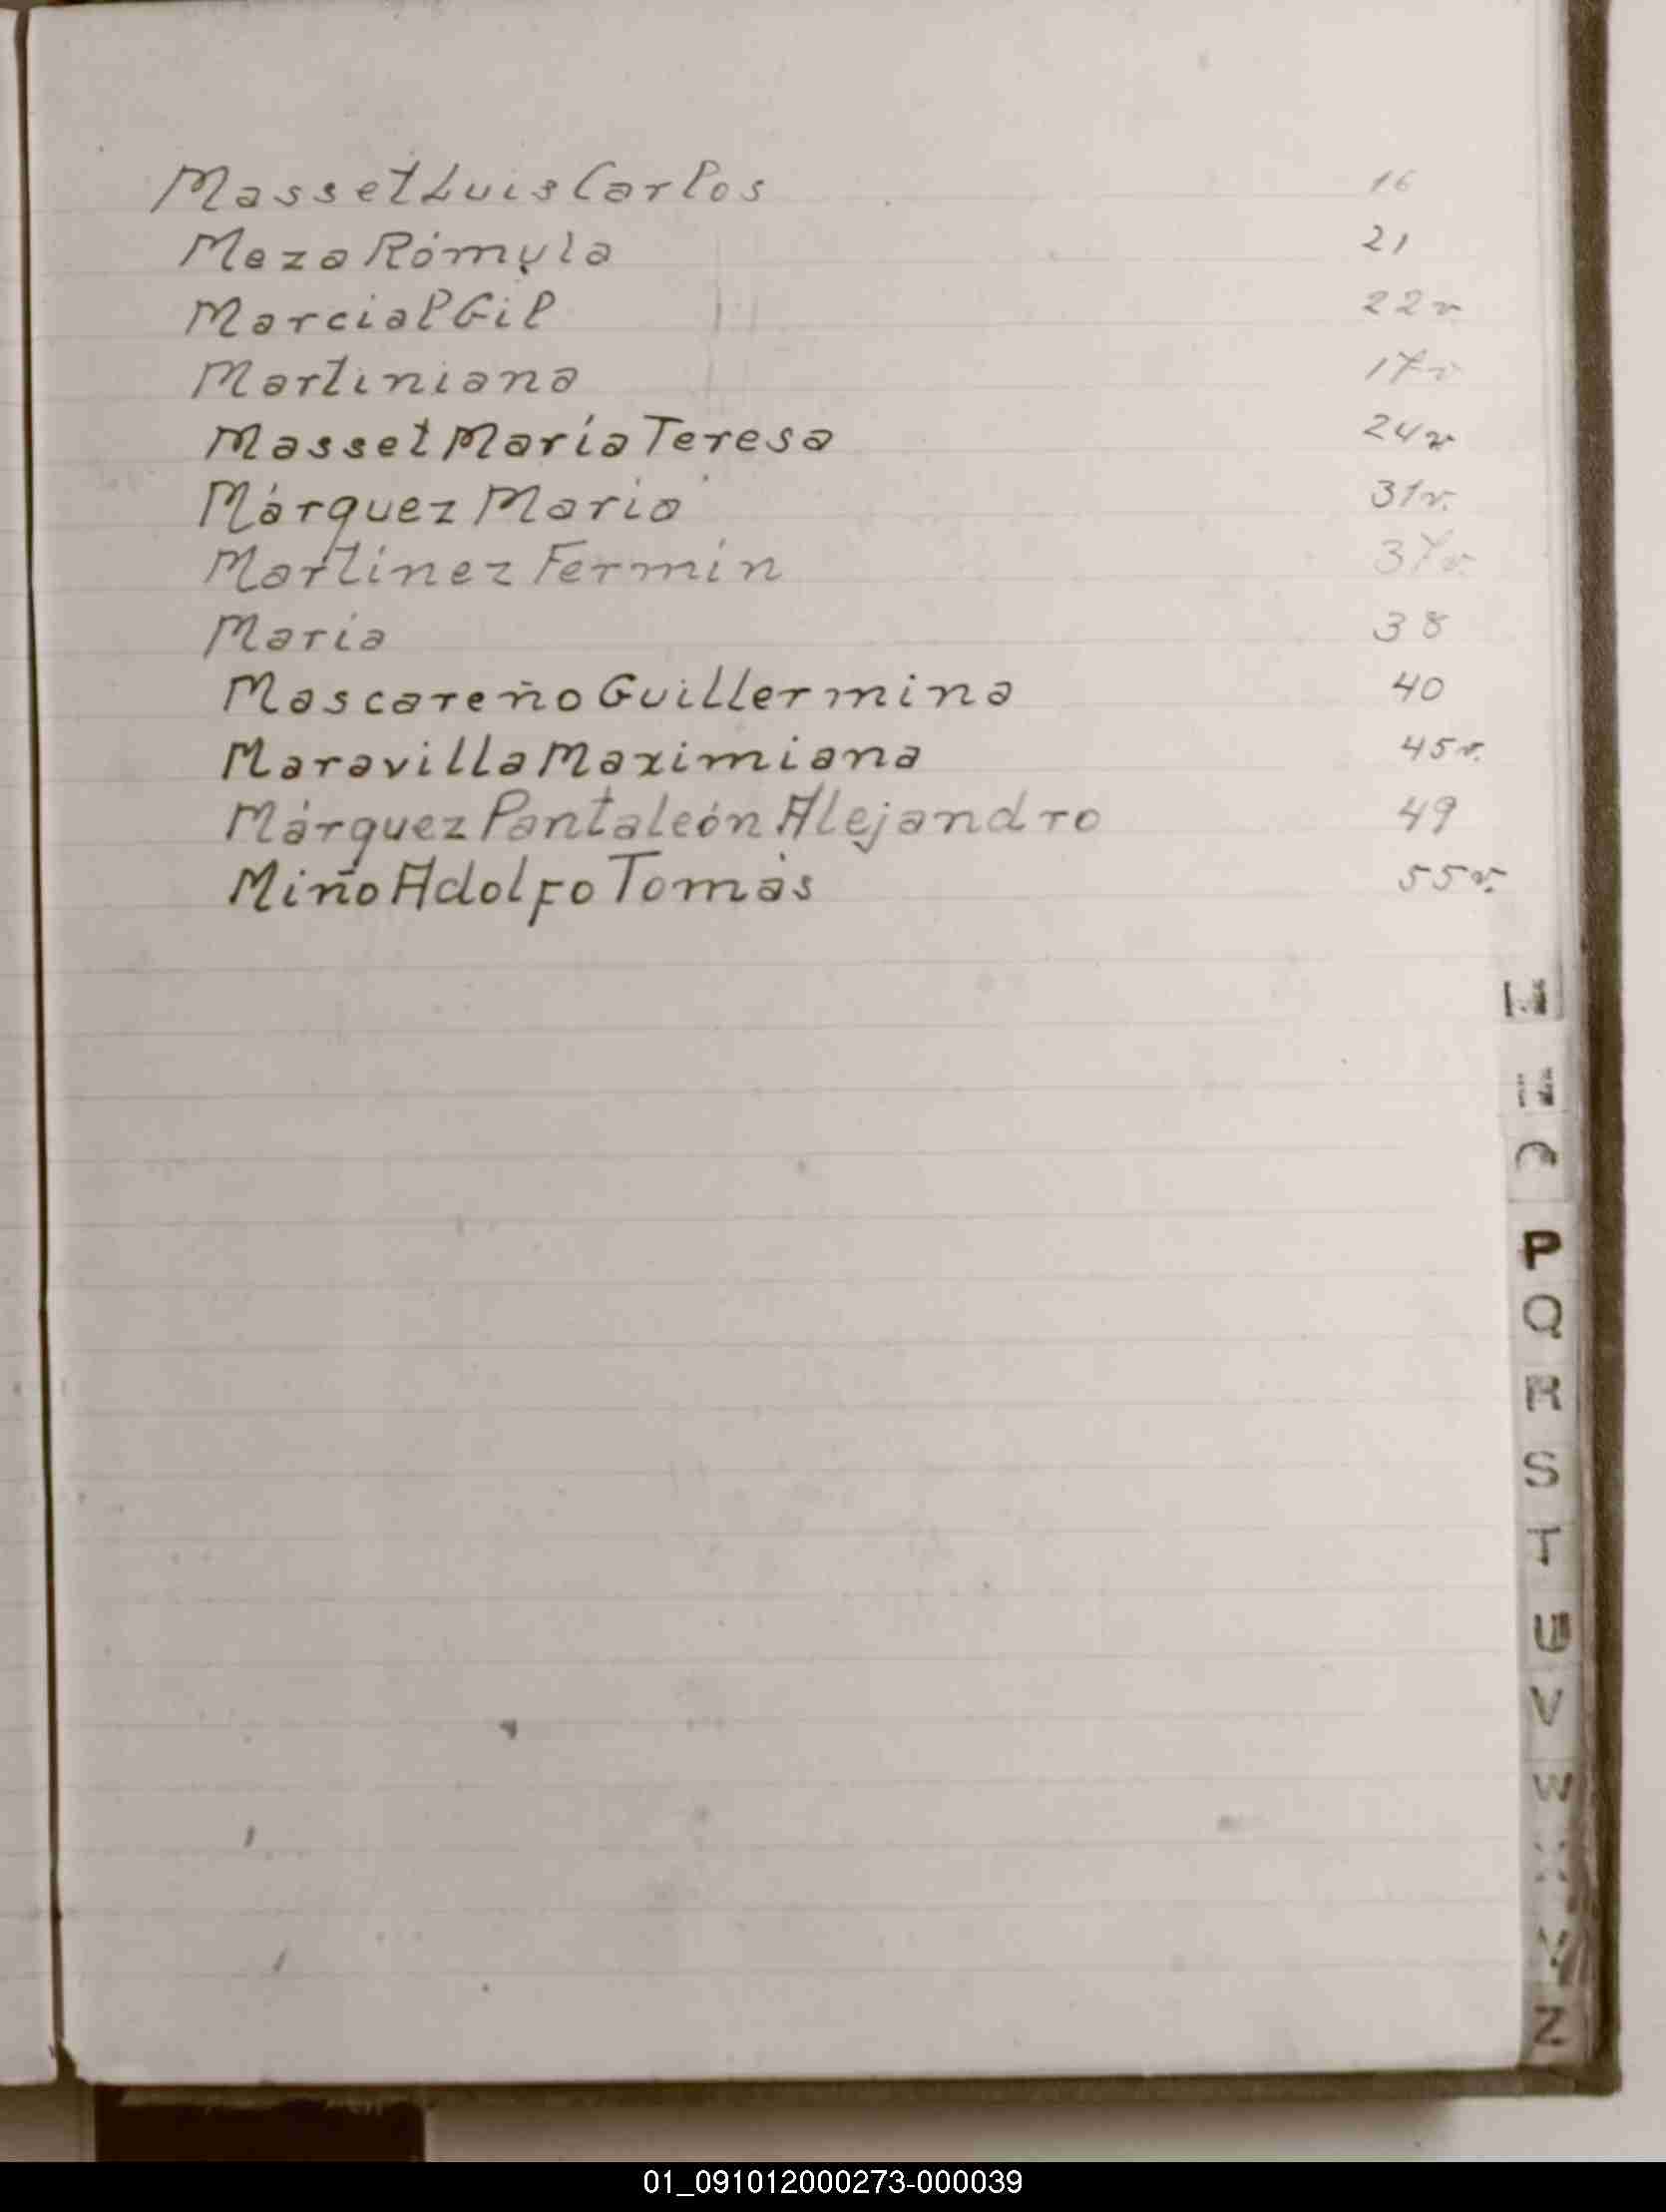 Masset Luis Carlos 16
Meza Rómula 21
Marcial Gil 22v
Martiniana 17v
Masset María Teresa 24v
Márquez Mario 31v.
Martínez Fermín 37v.
María 38
Mascareño Guillermina 40
Maravilla Maximiana 45v.
Márquez Pantaleón Alejandro 49
Miño Adolfo Tomás 55v.
P
Q
R
S
T
U
V
W
Y
Z
01_091012000273-000039